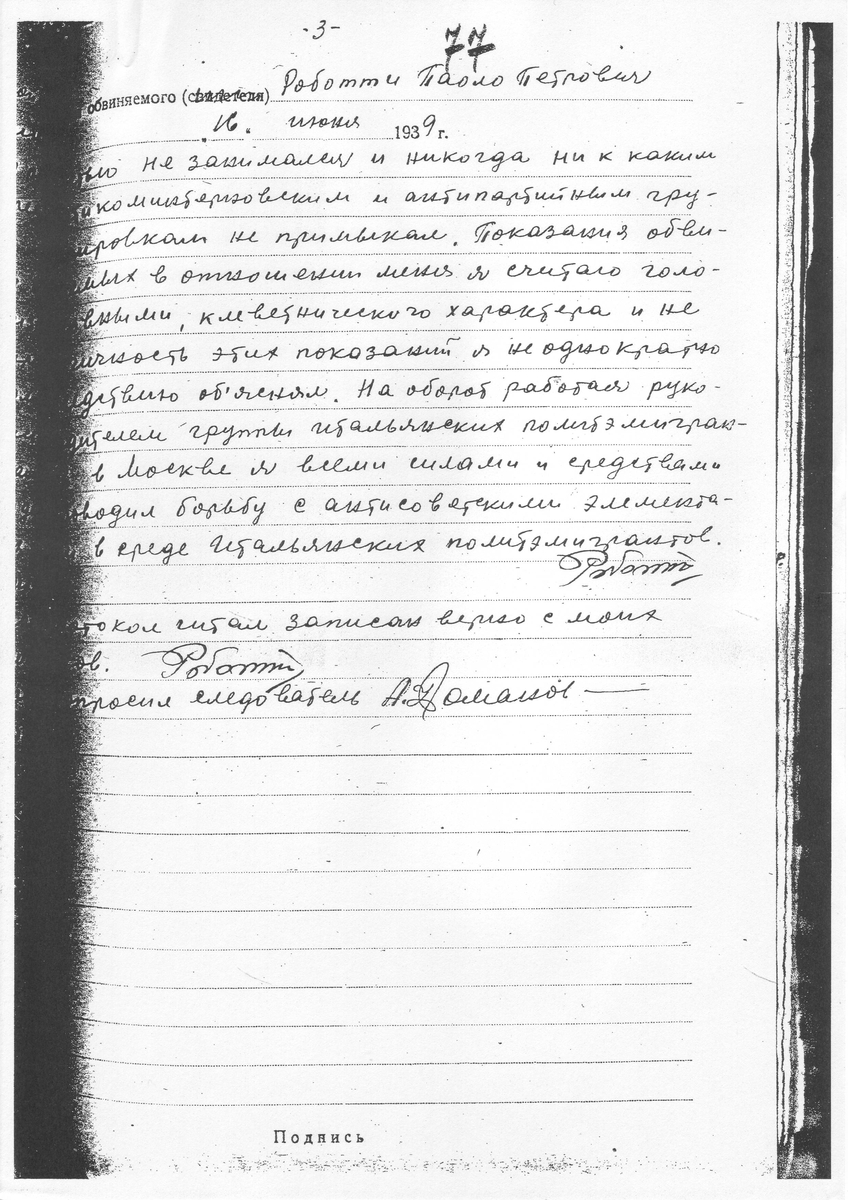 -3-
77
обвиняемого (свидетеля) Роботти Паоло Петрович
16. июня 1939 г.
не занимался и никогда ни к каким
коминтерновским и антипартийным гру-
ировкам не примыкал. Показания обви-
в отношении меня я считаю голо-
вными, клеветнического характера и не
ичность этих показаний я неоднократно
дствию об'яснял. На оборот работая руко-
дителем группы итальянских политэмигран-
в Москве я всеми силами и средствами
оводил борьбу с антисоветскими элемента-
в среде Итальянских политэмигрантов.
Роботти
токол читал записан верно с моих
ов. Роботти
просил следователь А.
Подпись